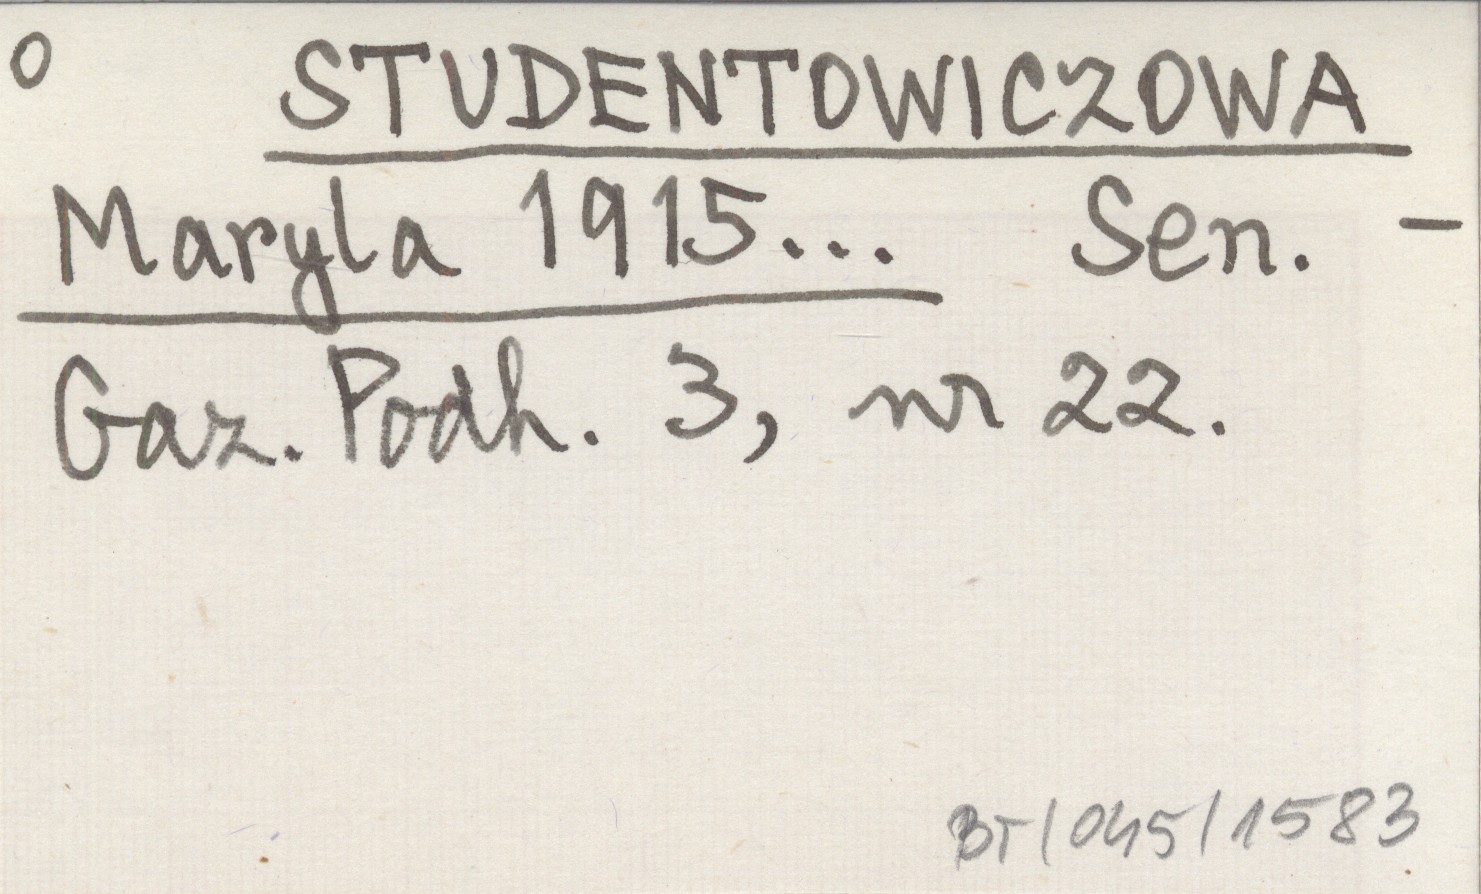 o STUDENTOWICZOWA
Maryla 1915... Sen. –
Gaz. Podh. 3, nr 22.
BT/045/1583